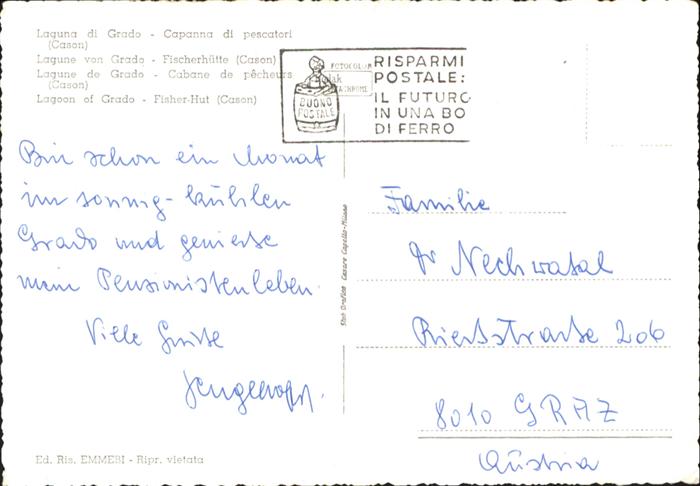 Laguna di Grado - Capanna di pescatori
(Cason)
Lagune von Grado - Fischerhütte (Cason)
Lagune de Grado - Cabane de pêcheurs
(Cason)
Lagoon of Grado - Fisher-Hut (Cason)
FOTOCOLOR
BUONO
POSTALE
RISPARMI
POSTALE:
IL FUTURO
IN UNA BO
DI FERRO
Bin schon ein Monat
im sonnig-kühlen
Grado und genieße
mein Pensionistenleben.
Viele Grüße
Stab. Grafico Cesare Capello-Milano
Familie
Dr Nechwatal
Riesstraße 206
8010 GRAZ
Austria
Ed. Ris. EMMEBI - Ripr. vietata